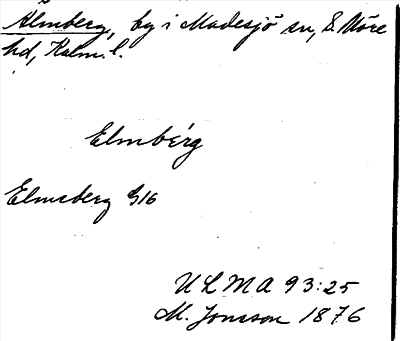 Älmberg, by i Madesjö sn, S. Möre
hd, Kalm. l.
Elmbérg
Elmeberg G16
ULMA 93:25
M. Jonsson 1876